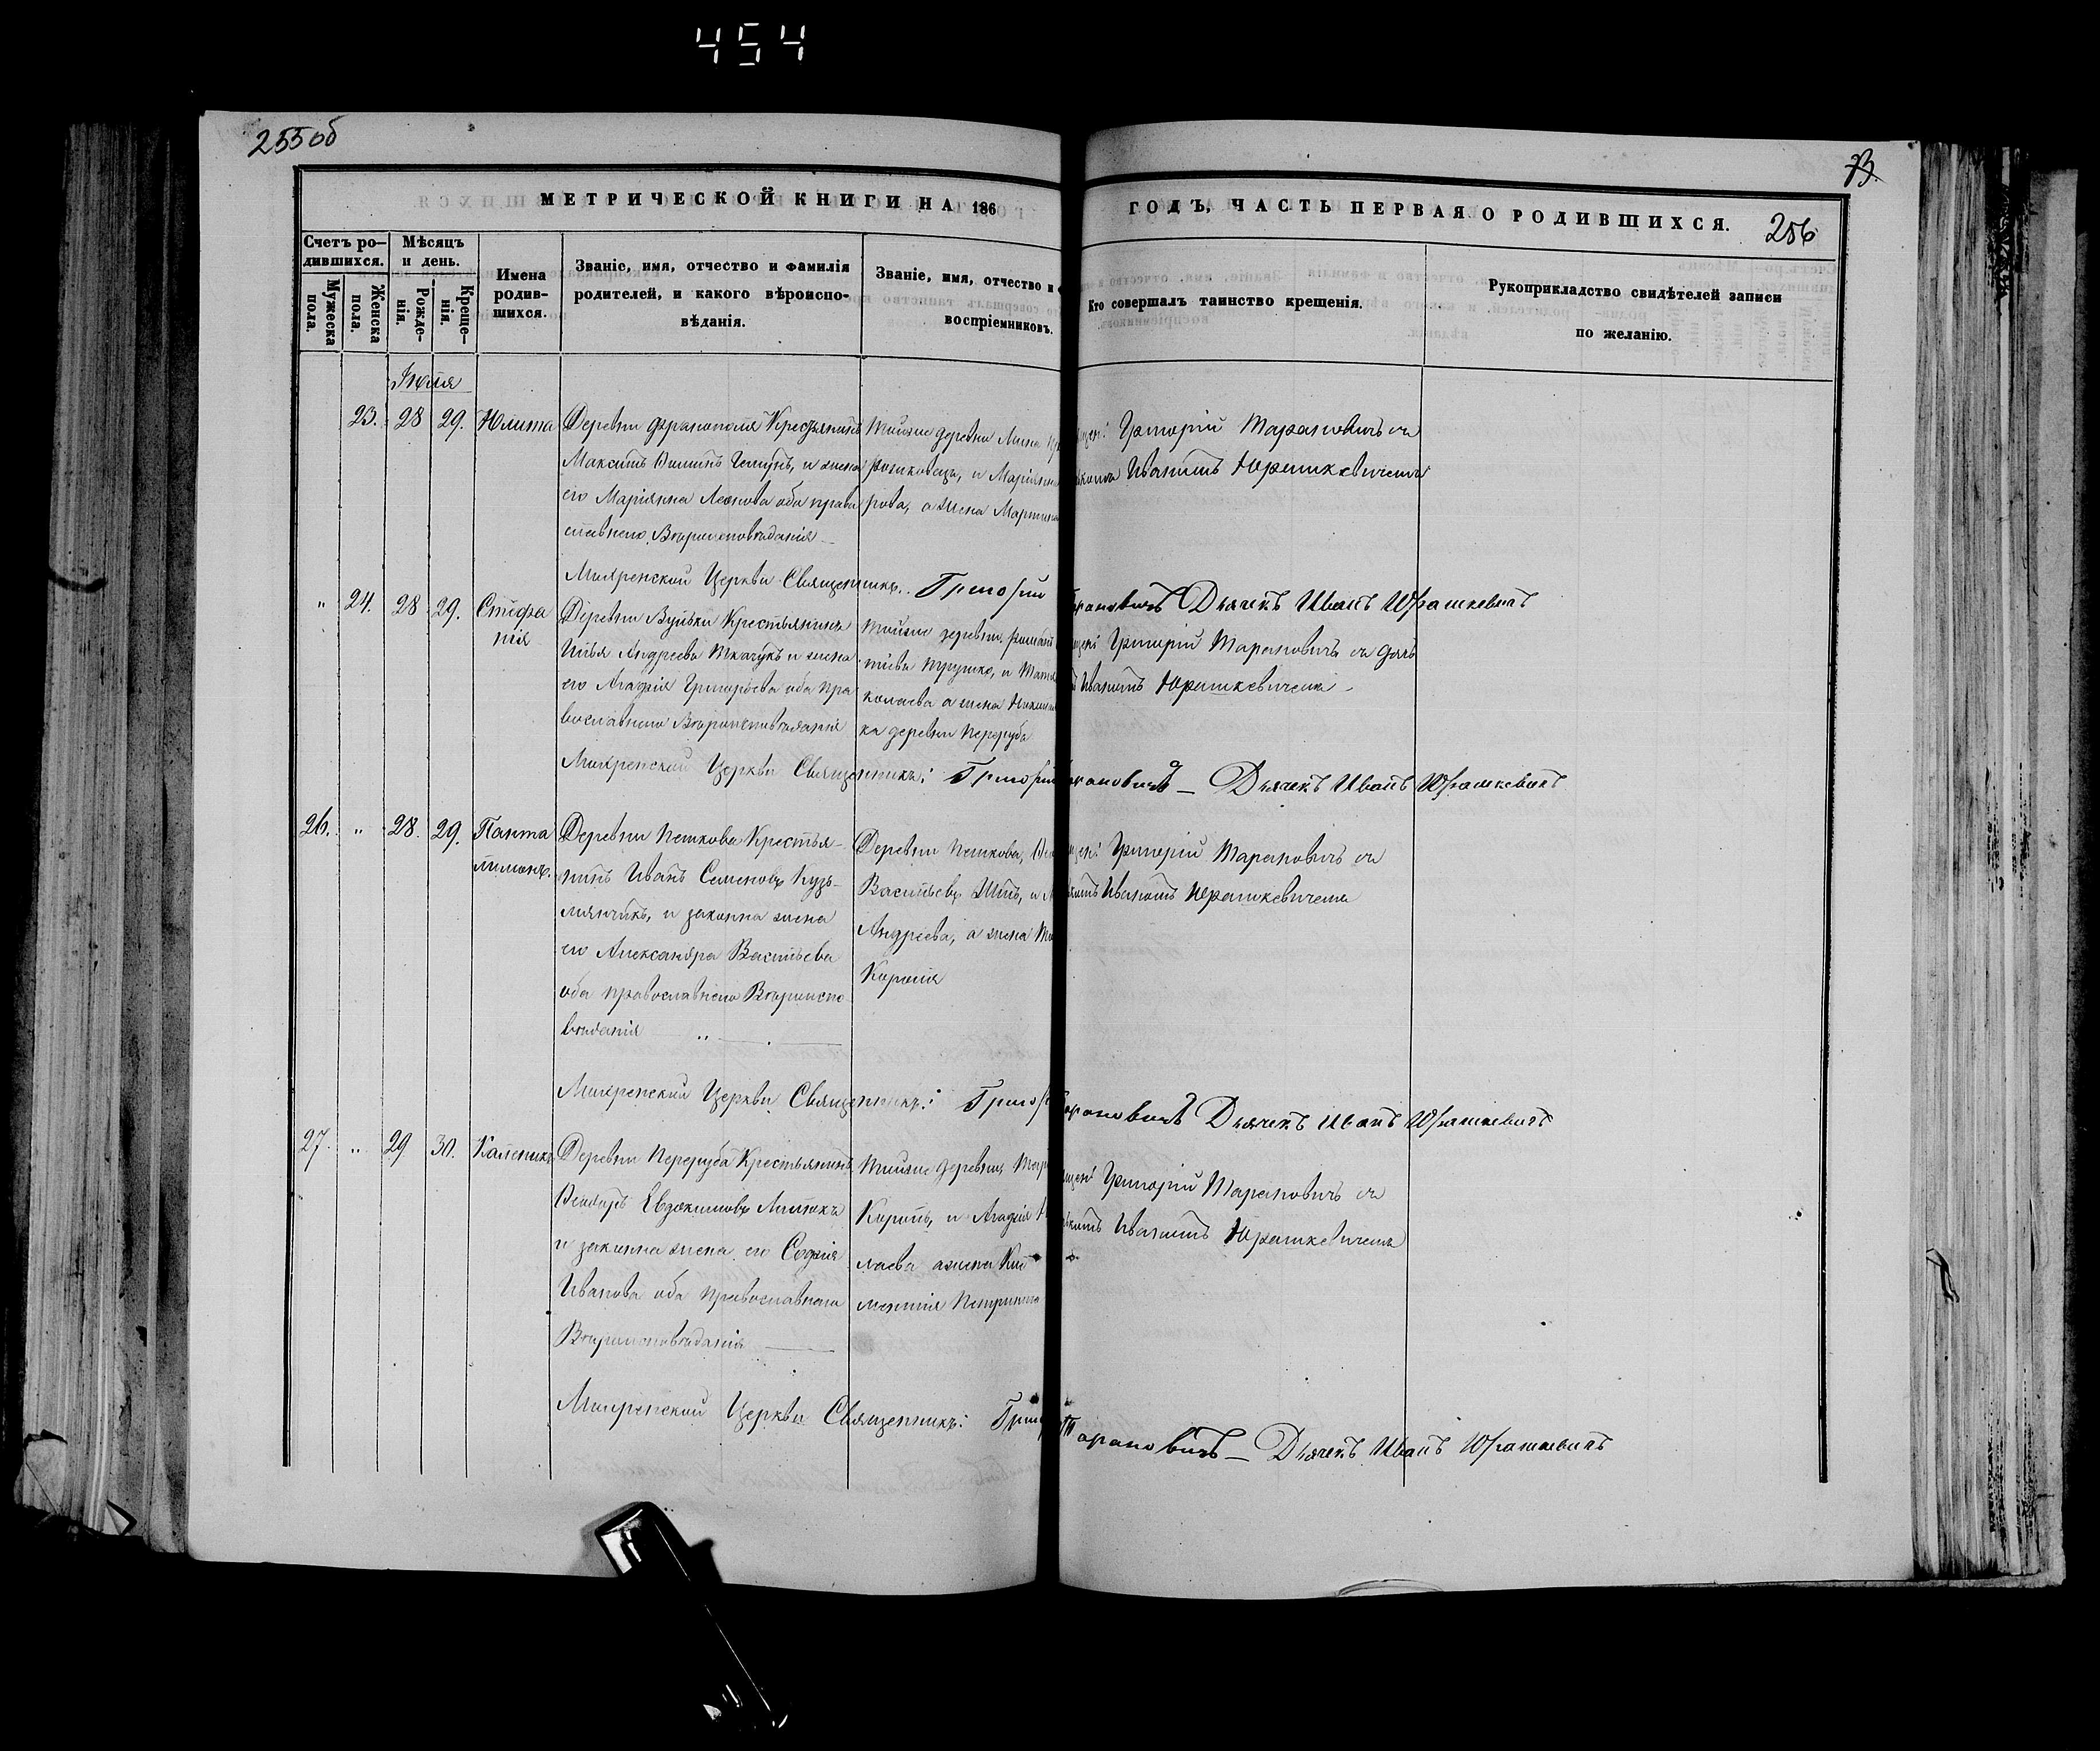 454
255 об
73.
МЕТРИЧЕСКОЙ КНИГИ НА 186
ГОДЪ, ЧАСТЬ ПЕРВАЯ О РОДИВШИХСЯ.
256
Счетъ ро-
дившихся.
Мужеска
пола.
Женска
пола.
Мѣсяцъ
и день.
Рожде-
нія.
Креще-
нія.
Имена
родив-
шихся.
Званіе, имя, отчество и фамилія
родителей, и какого вѣроиспо-
вѣданія.
Званіе, имя, отчество и
воспріемниковъ.
Кто совершалъ таинство крещенія.
Рукоприкладство свидѣтелей записи
по желанію.
Іюля
23. 28 29. Юлита
Деревни Франополя Крестьянинъ
его Маріянна Леонова оба право
славнаго Вѣроисповѣданія
Тойже деревни
рова, а жена Мартина
Григорій Тарановичъ съ
Иваномъ Юрашкевичемъ
Церкви Священникъ: Григорій Тарановичъ Дьячекъ Иванъ Юрашкевичъ
" 24. 28 29. Стефа
нія
Деревни Вульки Крестьянинъ
Илья Андреевъ Ткачукъ и жена
его Агафія Григорьева оба пра
вославнаго Вѣроисповѣданія
Тойже деревни
колаева а жена
ка деревни Переруба
Григорій Тарановичъ съ
Иваномъ Юрашкевичемъ
Церкви Священникъ: Григорій Тарановичъ — Дьячекъ Иванъ Юрашкевичъ
26. " 28. 29. Панта
лимонъ.
Деревни Пешкова Крестья-
нинъ Иванъ Семеновъ Кузь-
мянчикъ, и законна жена
его Александра Васильева
оба православнаго Вѣроиспо
вѣданія
Деревни Пешкова,
Васильевъ
Андреева, а жена
Короля
Григорій Тарановичъ съ
Иваномъ Юрашкевичемъ
Церкви Священникъ: Григорій Тарановичъ Дьячекъ Иванъ Юрашкевичъ
27. " 29 30. Каленикъ
Деревни Переруба Крестьянинъ
Евдокимовъ
и законна жена его Софія
Иванова оба православнаго
Вѣроисповѣданія
Тойже деревни
Король, и Агафія
лаева а жена
Григорій Тарановичъ съ
Иваномъ Юрашкевичемъ
Церкви Священникъ: Григорій Тарановичъ — Дьячекъ Иванъ Юрашкевичъ